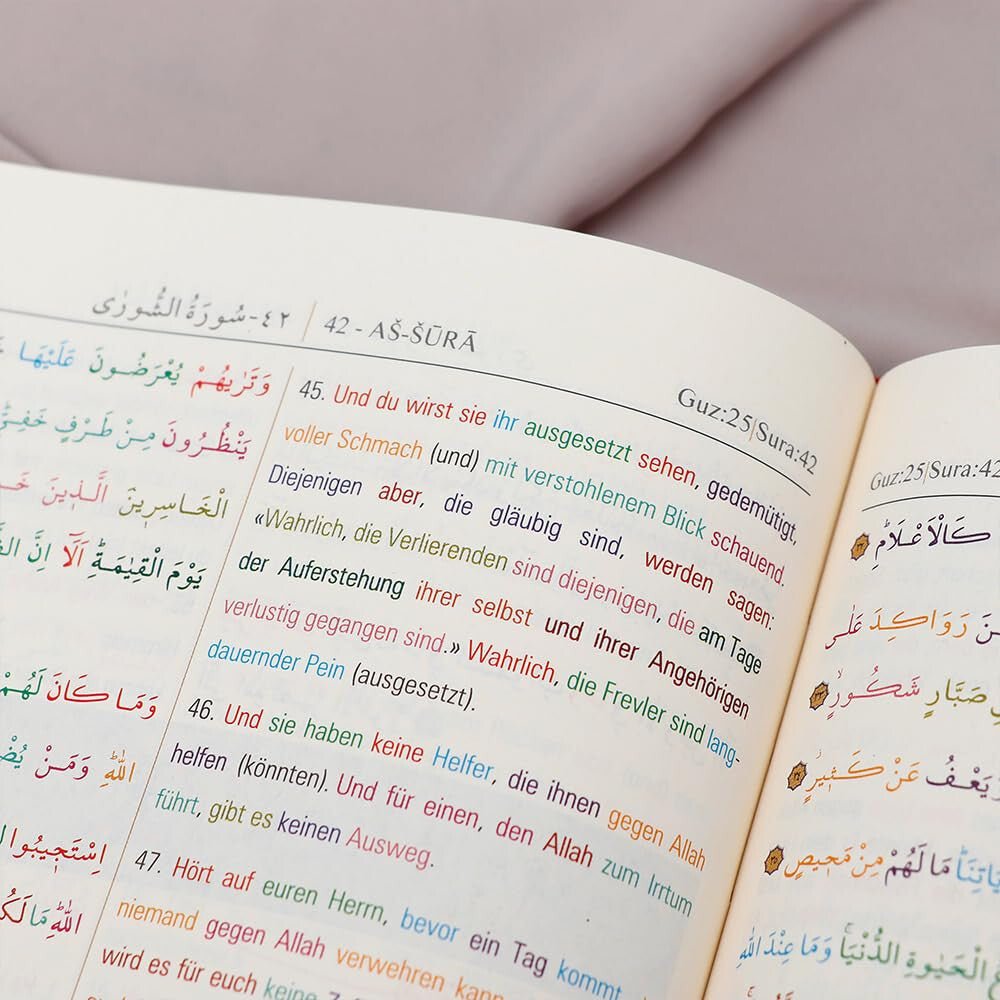 ٤٢-سُورَةُ الشُّورٰى | 42 - AŠ-ŠŪRĀ
Guz:25|Sura:42
وَتَرٰيهُمْ يُعْرَضُونَ عَلَيْهَا
يَنْظُرُونَ مِنْ طَرْفٍ خَفِيٍّ
الْخَاسِرِينَ الَّذِينَ
يَوْمَ الْقِيٰمَةِ اَلَٓا اِنَّ
وَمَا كَانَ لَهُمْ
اللّٰهِ وَمَنْ
اِسْتَجِيبُوا
اللّٰهِ مَا
45. Und du wirst sie ihr ausgesetzt sehen, gedemütigt,
voller Schmach (und) mit verstohlenem Blick schauend.
Diejenigen aber, die gläubig sind, werden sagen:
«Wahrlich, die Verlierenden sind diejenigen, die am Tage
der Auferstehung ihrer selbst und ihrer Angehörigen
verlustig gegangen sind.» Wahrlich, die Frevler sind lang-
dauernder Pein (ausgesetzt).
46. Und sie haben keine Helfer, die ihnen gegen Allah
helfen (könnten). Und für einen, den Allah zum Irrtum
führt, gibt es keinen Ausweg.
47. Hört auf euren Herrn, bevor ein Tag kommt
niemand gegen Allah verwehren kann
wird es für euch keine
Guz:25|Sura:42
كَالْاَعْلَامِ ٣٢
رَوَاكِدَ عَلٰى
صَبَّارٍ شَكُورٍ ٣٣
وَيَعْفُ عَنْ كَثِيرٍ ٣٤
مَا لَهُمْ مِنْ مَحِيصٍ ٣٥
الْحَيٰوةِ الدُّنْيَا وَمَا عِنْدَ اللّٰهِ